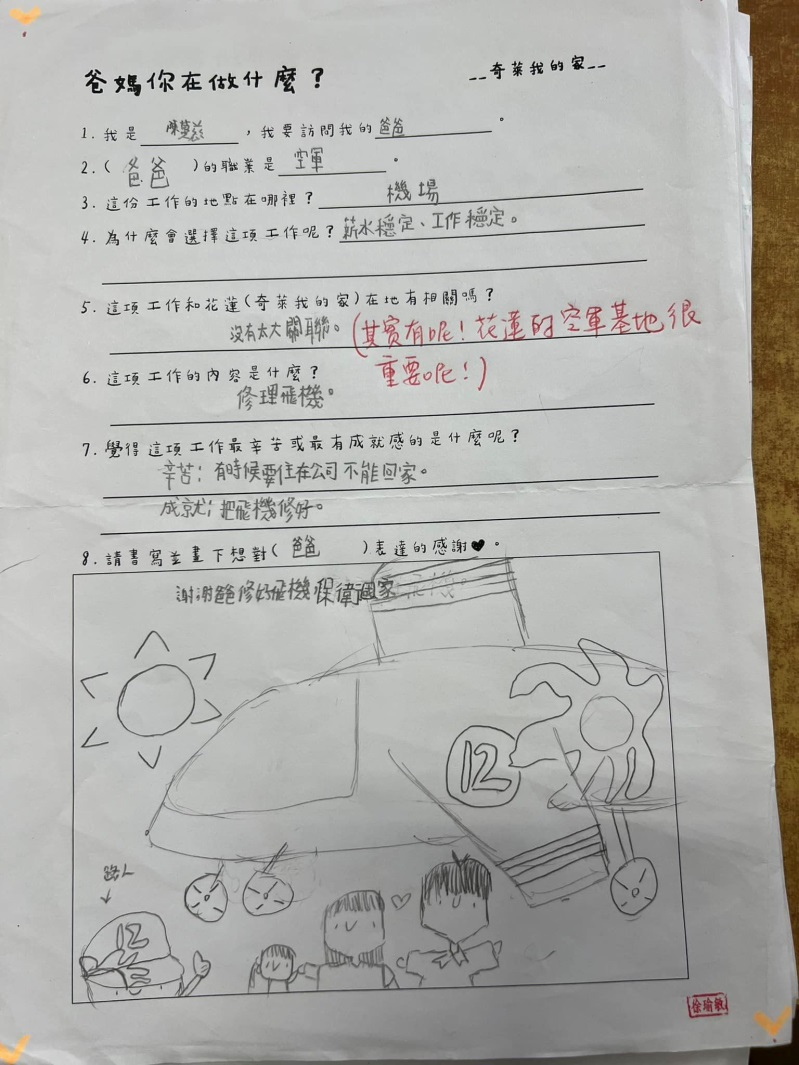 爸媽你在做什麼？
__奇萊我的家__
1. 我是陳莫茲，我要訪問我的爸爸。
2. (爸爸)的職業是空軍。
3. 這份工作的地點在哪裡？機場
4. 為什麼會選擇這項工作呢？薪水穩定、工作穩定。
5. 這項工作和花蓮(奇萊我的家)在地有相關嗎？
沒有太大關聯。(其實有呢！花蓮的空軍基地很
重要呢！)
6. 這項工作的內容是什麼？
修理飛機。
7. 覺得這項工作最辛苦或最有成就感的是什麼呢？
辛苦：有時候要住在公司不能回家。
成就：把飛機修好。
8. 請書寫並畫下想對(爸爸)表達的感謝♥。
謝謝爸爸修好飛機保衛國家
12
路人
12
徐瑜敏